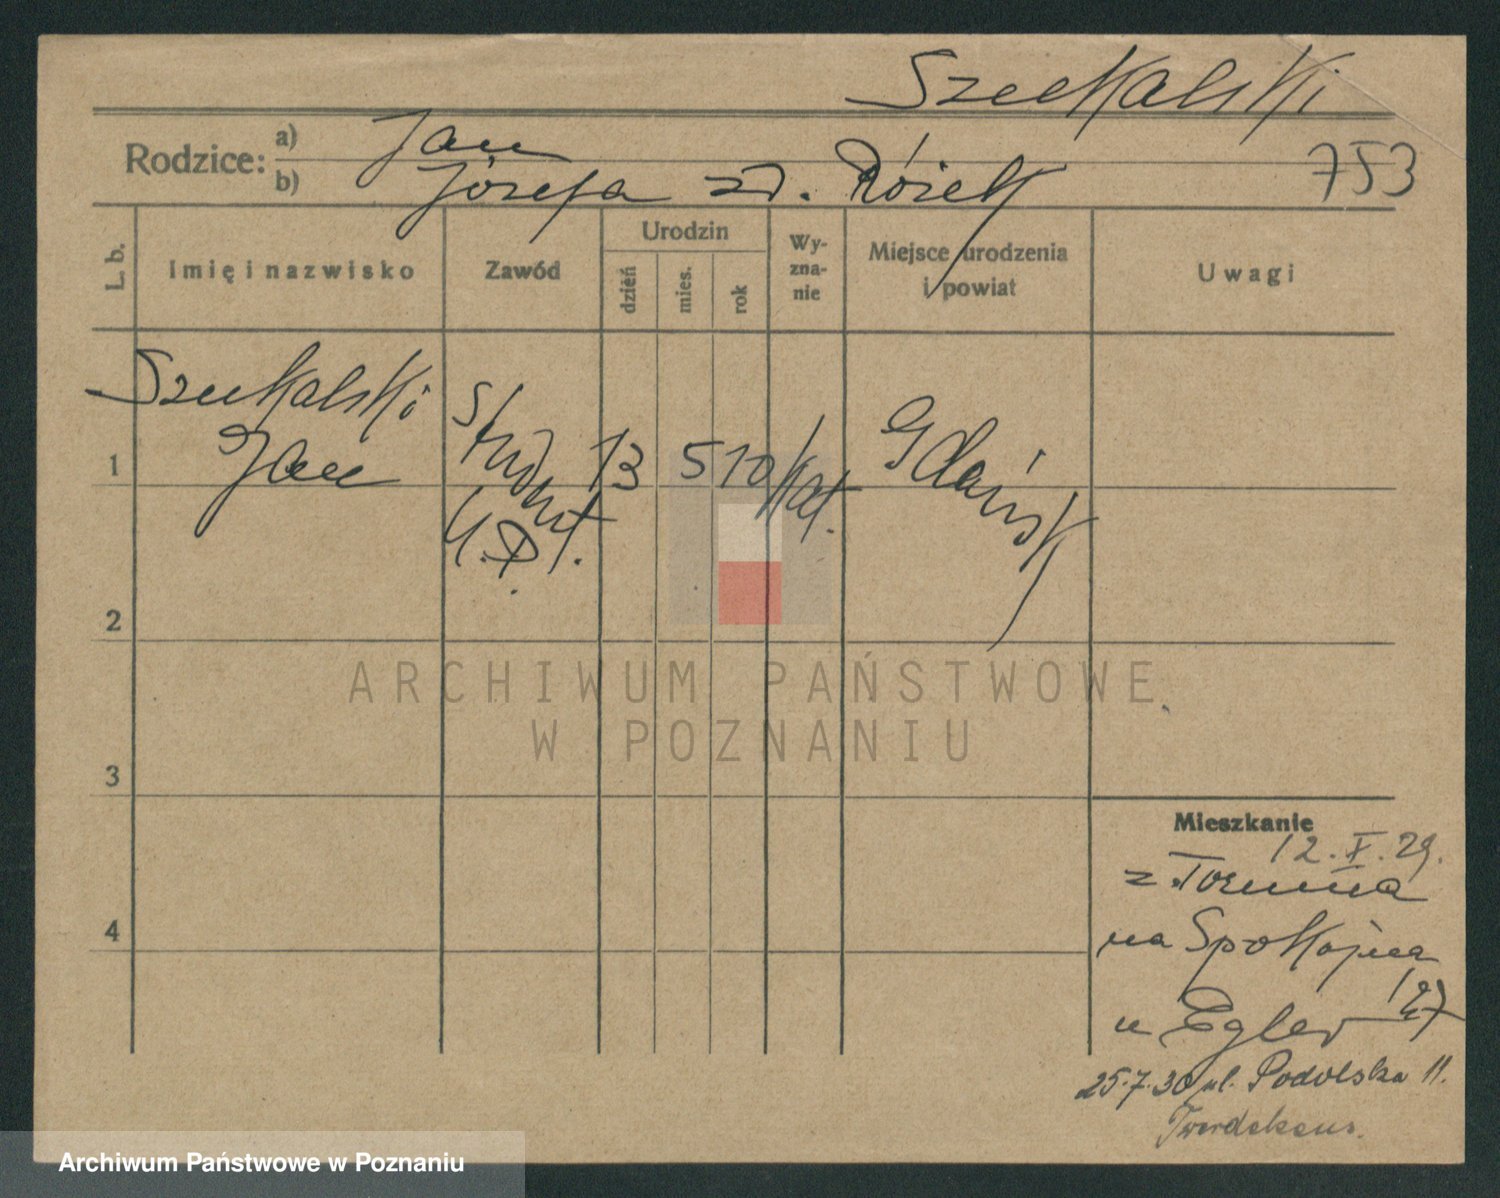 Szukalski
Rodzice: a) Jan
b) Józefa zd. Rózek
753
L. b.
Imię i nazwisko
Zawód
Urodzin
dzień
mies.
rok
Wy-
zna-
nie
Miejsce urodzenia
i powiat
Uwagi
Szukalski
Jan
student
U.P.
13
5
10
kat.
Gdańsk
1
2
3
4
ARCHIWUM PAŃSTWOWE
W POZNANIU
Mieszkanie
12.X.29.
z Torunia
na Spokojna
u Egler
25.7.30 ul. Podolska 11.
Archiwum Państwowe w Poznaniu